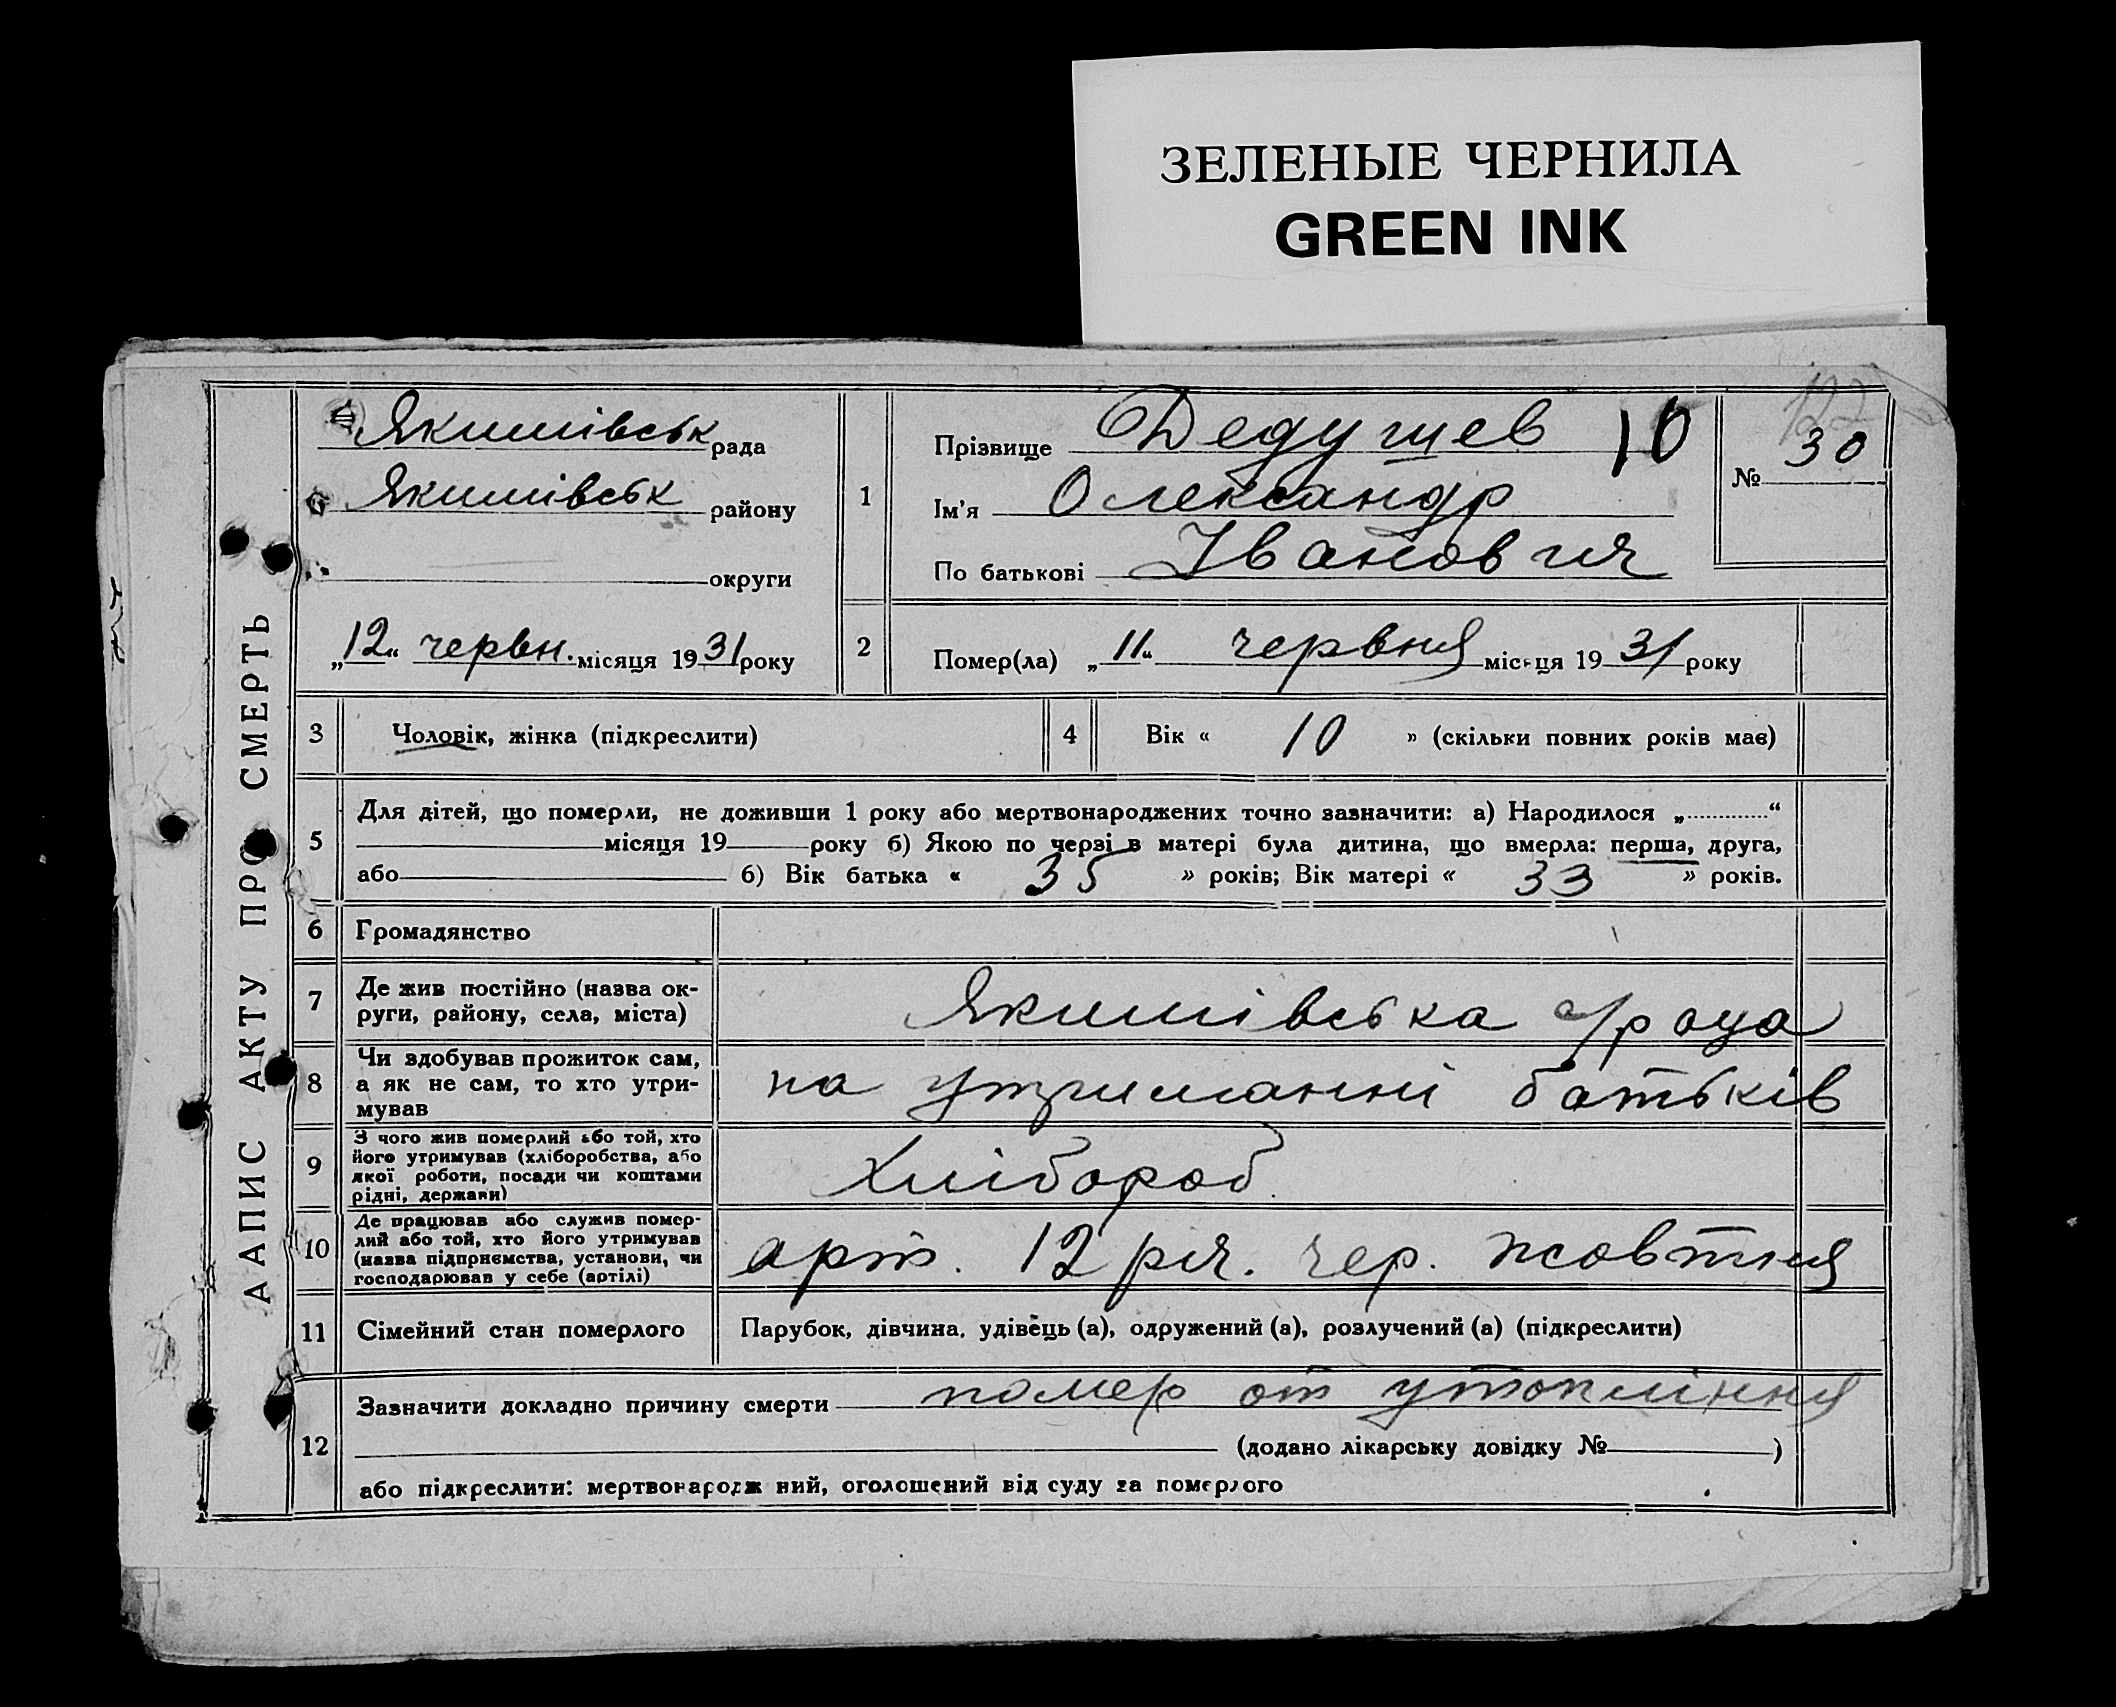 ЗЕЛЕНЫЕ ЧЕРНИЛА
GREEN INK
ААПИС АКТУ ПРО СМЕРТЬ
Якимівськ рада
Якимівськ району
округи
„12“ червн. місяця 1931 року
1
Прізвище Дедушев 10
Ім'я Олександр
По батькові Іванович
№ 30
2
Помер(ла) „11“ червня місяця 1931 року
3 Чоловік, жінка (підкреслити)
4 Вік « 10 » (скільки повних років має)
5
Для дітей, що померли, не доживши 1 року або мертвонароджених точно зазначити: а) Народилося „ “
місяця 19 року б) Якою по черзі в матері була дитина, що вмерла: перша, друга,
або б) Вік батька « 35 » років; Вік матері « 33 » років.
6 Громадянство
7 Де жив постійно (назва ок-
руги, району, села, міста)
Якимівська
8 Чи здобував прожиток сам,
а як не сам, то хто утри-
мував
на утриманні батьків
9 З чого жив померлий або той, хто
його утримував (хліборобства, або
якої роботи, посади чи коштами
рідні, держави)
Хлібороб
10 Де працював або служив помер-
лий або той, хто його утримував
(назва підприємства, установи, чи
господарював у себе (артілі)
арт. 12 річ. чер. жовтня
11 Сімейний стан померлого
Парубок, дівчина, удівець (а), одружений (а), розлучений (а) (підкреслити)
12
Зазначити докладно причину смерти помер от утопління
(додано лікарську довідку № )
або підкреслити: мертвонародж ний, оголошений від суду за померлого